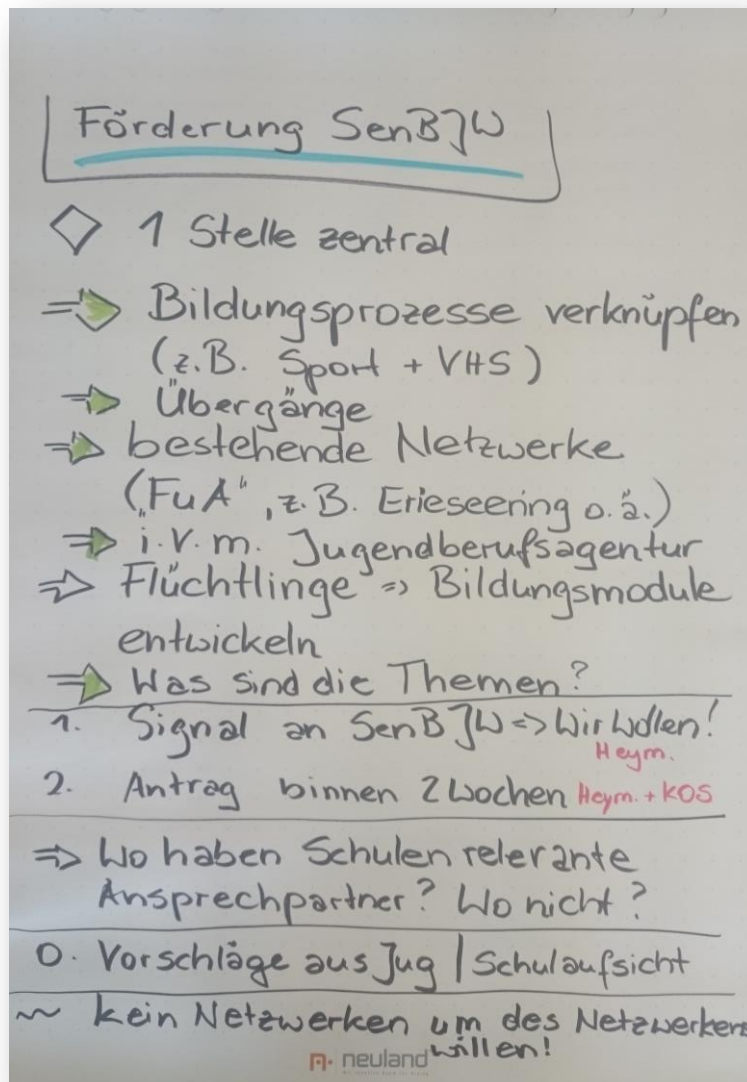 Förderung SenBJW
◇ 1 Stelle zentral
⇒ Bildungsprozesse verknüpfen
(z.B. Sport + VHS)
⇒ Übergänge
⇒ bestehende Netzwerke
(„FuA“, z.B. Erieseering o.ä.)
⇒ i.V.m. Jugendberufsagentur
⇒ Flüchtlinge => Bildungsmodule
entwickeln
⇒ Was sind die Themen?
1. Signal an SenBJW => Wir wollen!
Heym.
2. Antrag binnen 2 Wochen Heym. + KOS
⇒ Wo haben Schulen relevante
Ansprechpartner? Wo nicht?
0. Vorschläge aus Jug | Schulaufsicht
~ kein Netzwerken um des Netzwerkens
willen!
neuland